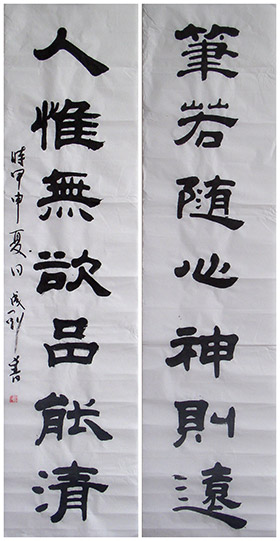 筆若随心神則遠
人惟無欲品能清
時甲申夏日